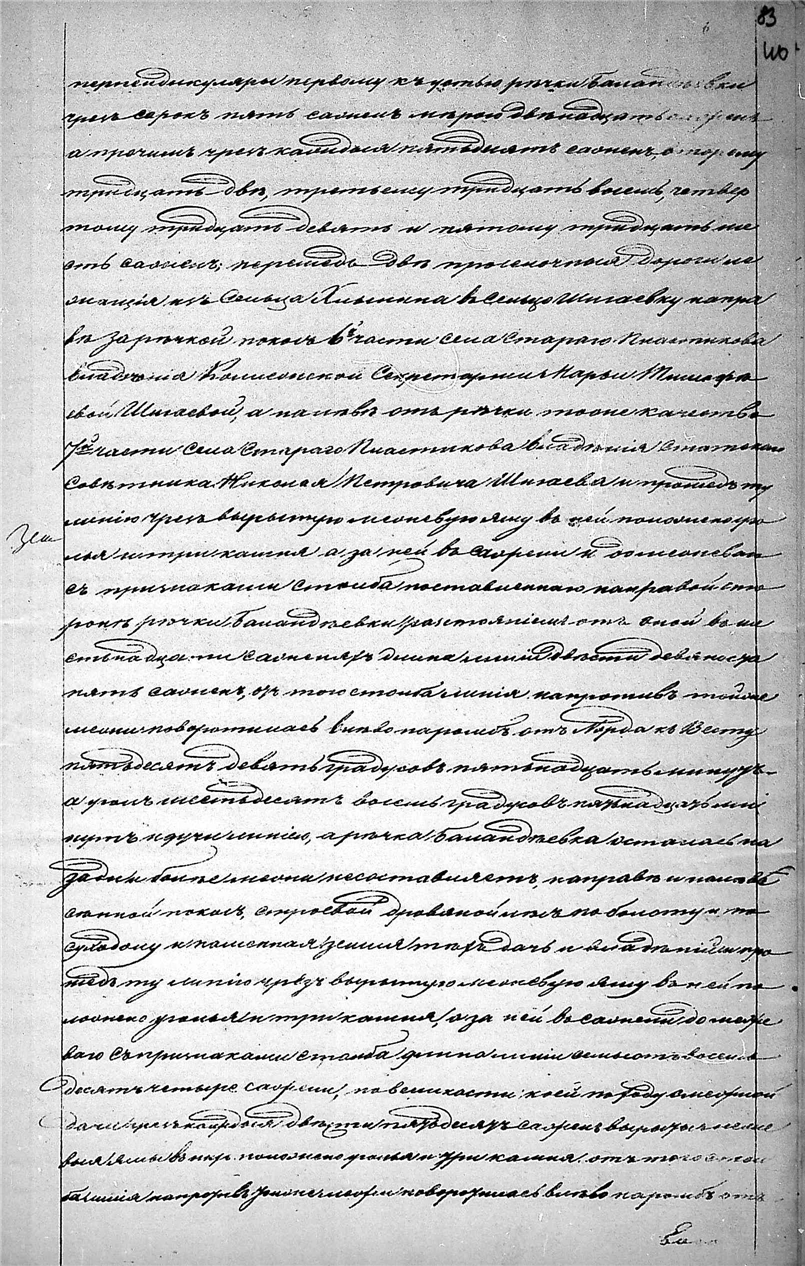 83
перпендикуляры первому къ устью рѣчки Баландѣевки
чрезъ сорокъ пять саженъ мѣрою двѣнадцать саженъ
а прочимъ чрезъ каждыя пятьдесятъ саженъ, второму
тридцать двѣ, третьему тридцать восемь, четвер
тому тридцать девять и пятому тридцать ше
сть саженъ; перешедъ двѣ проселочныя дороги ле
жащія изъ сельца Хлынина въ сельцо Шигаевку напра
вѣ за рѣчкой покосъ 6й части села Стараго Пластикова
владѣнія Коллежской Секретарши Марьи Тимофѣ
евой Шигаевой, а налѣвѣ отъ рѣчки тоже качество
7й части села Стараго Пластикова владѣнія Статскаго
Совѣтника Николая Петровича Шигаева и прошедъ ту
линію чрезъ вырытую межевую яму въ ней положено уго
лья и три камня а за ней въ сажени до межеваго
съ признаками столба поставленнаго на правой сто
ронѣ рѣчки Баландѣевки разстояніемъ отъ оной въ ше
стьнадцати саженяхъ длина линіи двѣсти девяносто
пять саженъ, отъ того столба линія напротивъ тойже
межи поворотилась влѣво паромбъ отъ Норда къ Весту
пятьдесятъ девять градусовъ пятьнадцать минутъ
а уголъ шестьдесятъ восемь градусовъ пятнадцать ми
нутъ идучи линіею, а рѣчка Баландѣевка осталась на
зади и болѣе межи не составляетъ, направѣ и налѣвѣ
сѣнной покосъ, строевой дровяной лѣсъ по болоту и по
суходолу и пашенная земля тѣхъ дачъ и владѣній и про
шедъ ту линію чрезъ вырытую межевую яму въ ней по
ложено уголья и три камня, а за ней въ сажени до меже
ваго съ признаками столба длина линіи семьсотъ восемь
десятъ четыре сажени, по великости коей по роду смежной
дачи чрезъ каждыя двѣсти пятьдесятъ саженъ вырыты меже
выя ямы въ нихъ положено уголья и три камня. отъ того стол
ба линія напротивъ тойже межи поворотилась влѣво паромбъ отъ